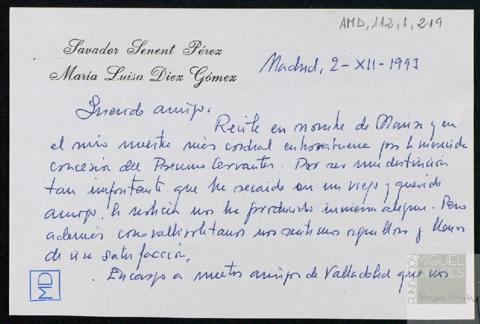 AMD, 112, 1, 219
Savador Senent Pérez
María Luisa Diez Gómez
Madrid, 2-XII-1993
Querido amigo:
Recibe en nombre de Marisa y en
el mio nuestra más cordial enhorabuena por la merecida
concesion del Premio Cervantes. Por ser una distinción
tan importante que ha recaido en un viejo y querido
amigo, la noticia nos ha producido inmensa alegria. Pero
además como vallisoletanos nos sentimos orgullosos y llenos
de una satisfacción.
Encargo a nuestros amigos de Valladolid que nos
MD
FUNDACIÓN
MIGUEL
DELIBES